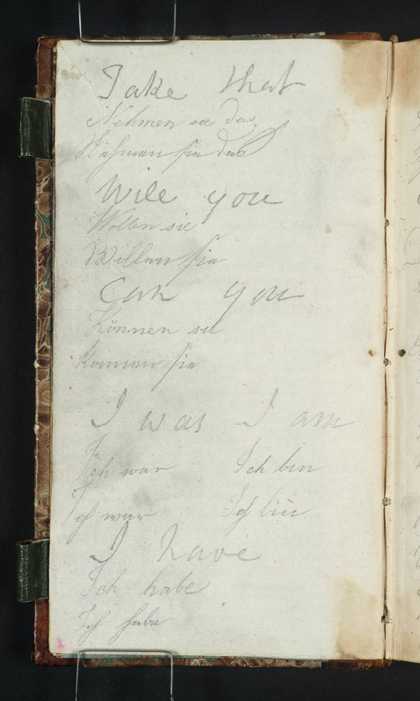 Take that
Nehmen sie das
Nehmen sie das
Will you
Wollen sie
Wollen sie
Can you
Können sie
Können sie
I was I am
Ich war Ich bin
Ich war Ich bin
I have
Ich habe
Ich habe